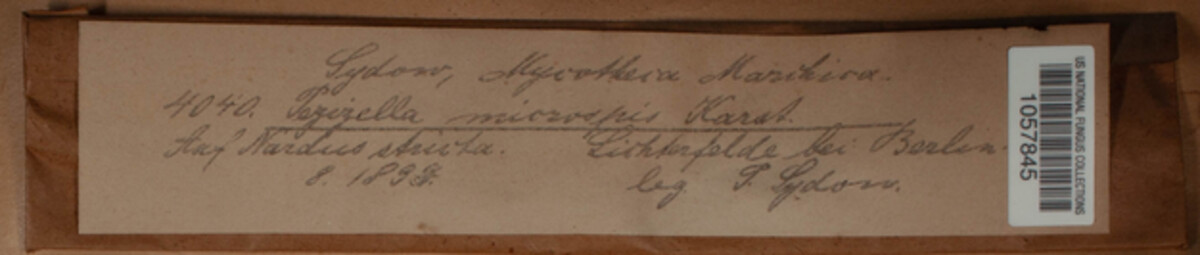 Sydow, Mycotheca Marchica.
4040. Pezizella microspis Karst.
Auf Nardus stricta. Lichterfelde bei Berlin.
8. 
leg P. Sydow.
US NATIONAL FUNGUS COLLECTIONS
1057845